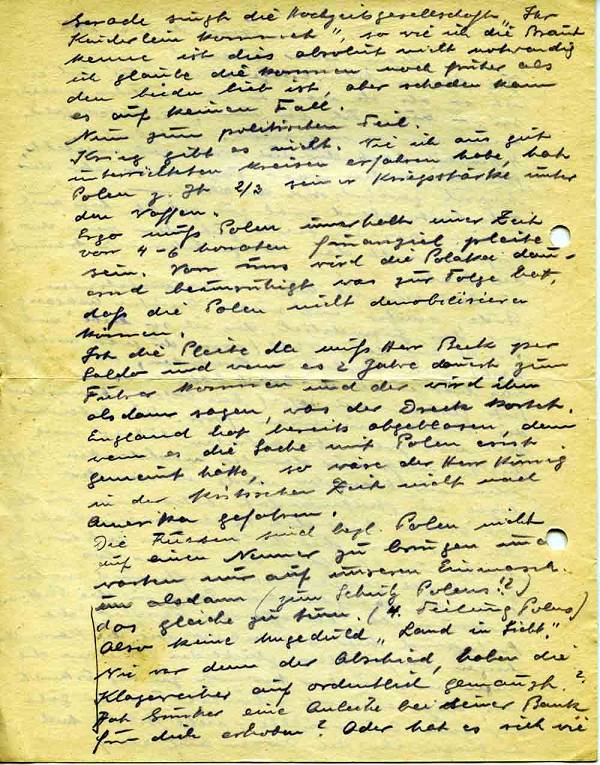 Gerade singt die Hochzeitsgesellschaft "Ihr
Kinderlein kommet", so wie ich die Braut
kenne ist dies absolut nicht notwendig
ich glaube die kommen noch früher als
den beiden lieb ist, aber schaden kann
es auf keinen Fall.
Nun zum politischen Teil.
Krieg gibt es nicht. Wie ich aus gut
unterrichteten Kreisen erfahren habe, hat
Polen z. Zt. 2/3 seiner Kriegsstärke unter
den Waffen.
Ergo muß Polen innerhalb einer Zeit
von 4-6 Monaten finanziel pleite
sein. Von uns wird die Polakei dau-
ernd beunruhigt was zur Folge hat,
daß die Polen nicht demobilisieren
können.
Ist die Pleite da muß Herr Beck per
Saldo und wenn es 2 Jahre dauert zum
Führer kommen und der wird ihm
alsdann sagen, was der Dreck kostet.
England hat bereits abgeblasen, denn
wenn es die Sache mit Polen ernst
gemeint hätte, so wäre der Herr König
in der kritischen Zeit nicht nach
Amerika gefahren.
Die Russen sind bzgl. Polen nicht
auf einen Nenner zu bringen und
warten nur auf unseren Einmarsch.
um alsdann (zum Schutz Polens!?)
das gleiche zu tun. (4. Teilung Polens)
Also keine Ungeduld "Land in Sicht."
Wie war denn der Abschied, haben die
Klageweiber auf ordentlich ?
Hat eine Anleihe bei seiner Bank
für dich erhoben? Oder hat es sich wie